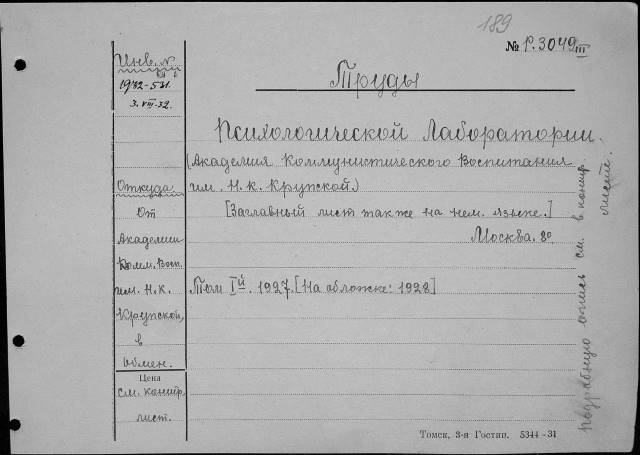 189
№ Р. 3049 III
Инв. №
1932-531.
3. VIII-32.
Труды
Психологической Лаборатории.
(Академия Коммунистического Воспитания
им. Н. К. Крупской.)
[Заглавный лист также на нем. языке.]
Москва. 8°
Том Iй. 1927. [На обложке: 1928]
Откуда
От
Академии
Комм. Восп.
им. Н. К.
Крупской,
в
обмен.
Цена
см. контр.
лист.
подробную опись см. в контр.
листе.
Томск, 3-я Гостип. 5344-31